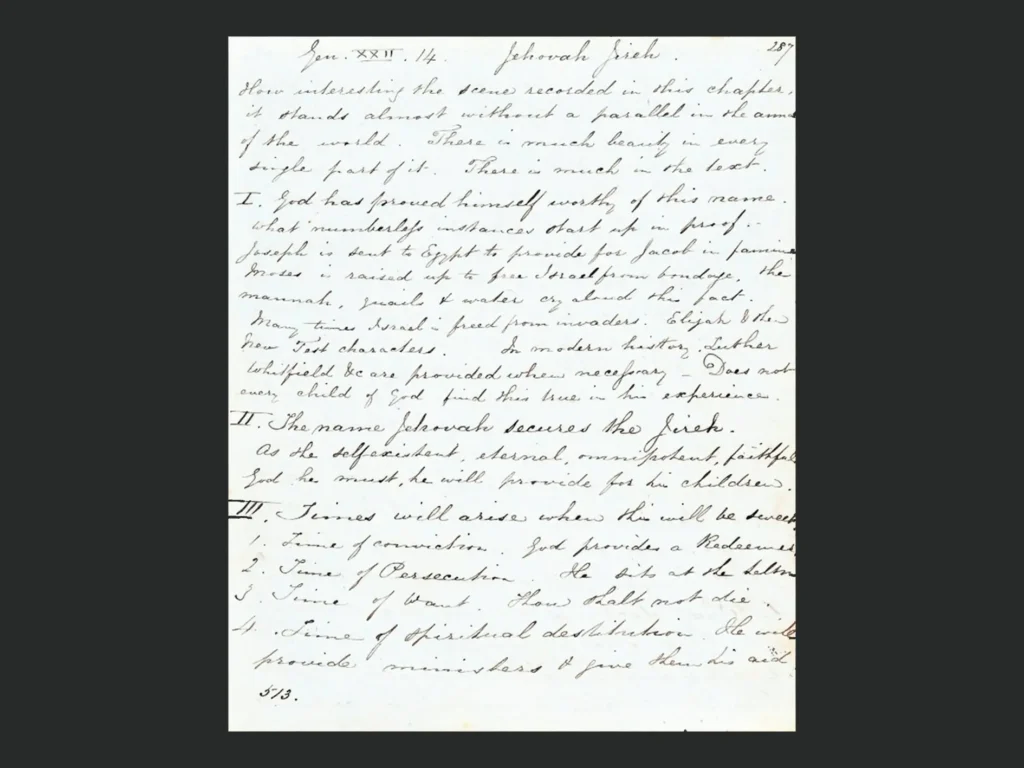 Gen. XXII. 14. Jehovah Jireh. 287
How interesting the scene recorded in this chapter,
it stands almost without a parallel in the
of the world. There is much beauty in every
single part of it. There is much in the text.
I. God has proved himself worthy of this name.
What numberless instances start up in proof.-
Joseph is sent to Egypt to provide for Jacob in famine
Moses is raised up to free Israel from bondage, the
mannah, quails & water cry aloud this fact.
Many times Israel is freed from invaders. Elijah & the
New Test characters. In modern history, Luther
Whitfield &c are provided when necessary - Does not
every child of God find this true in his experience.
II. The name Jehovah secures the Jireh.
As the selfexistent, eternal, omnipotent, faithful
God he must, he will provide for his children.
III. Times will arise when this will be sweet
1. Time of conviction. God provides a Redeemer
2. Time of Persecution. He sits at the helm
3. Time of Want. Thou shalt not die.
4. Time of spiritual destitution. He will
provide ministers & give them his aid
513.